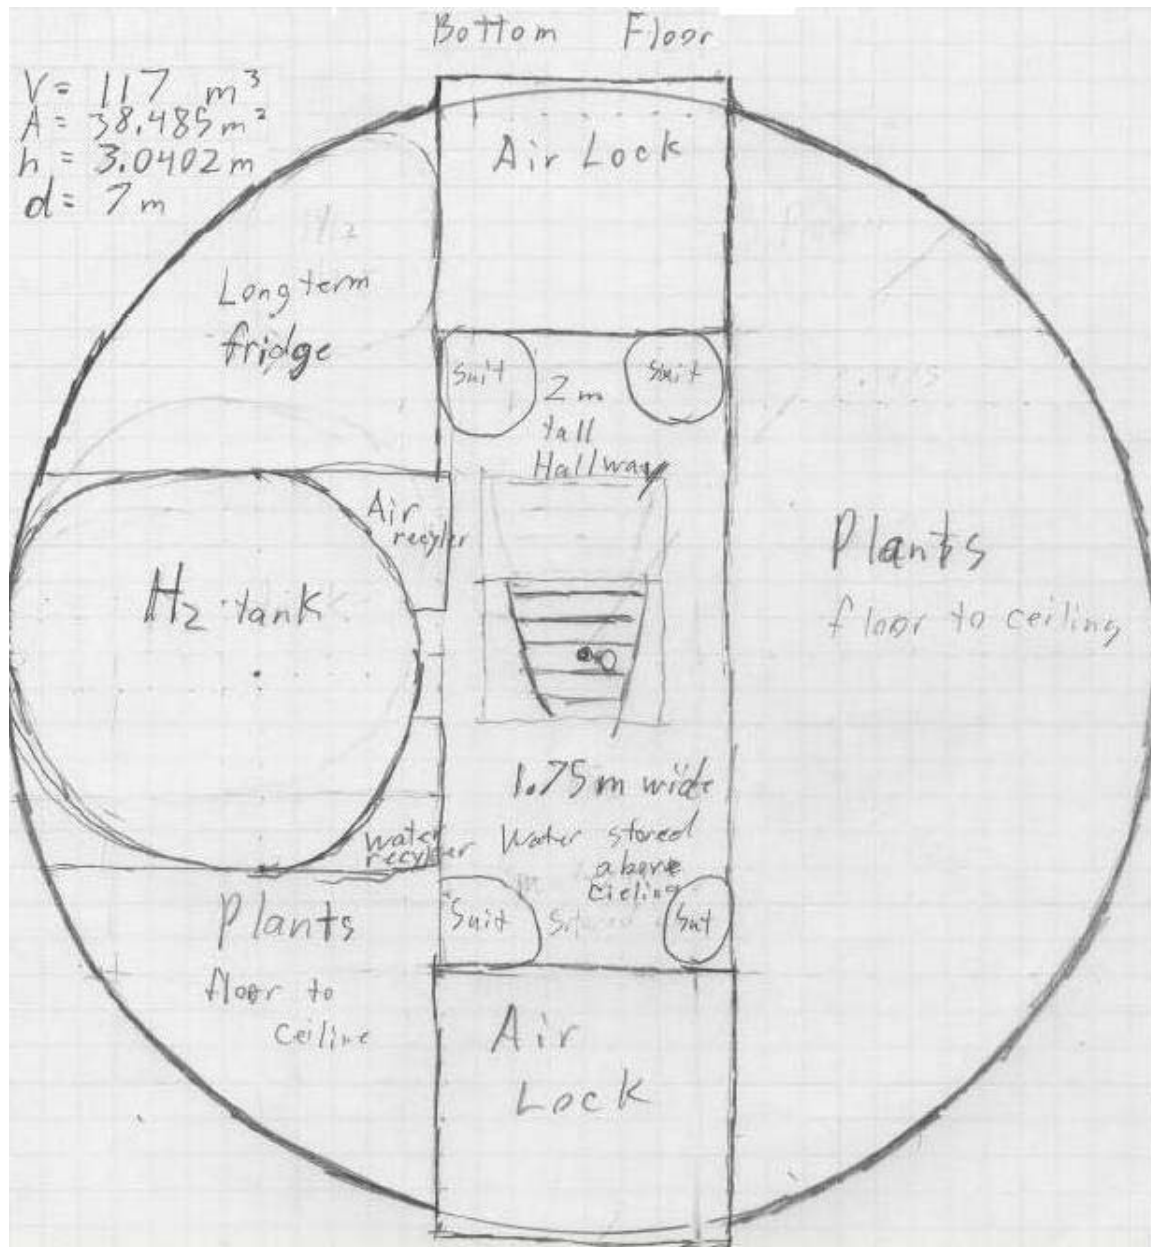 Bottom Floor
V = 117 m³
A = 38.485m²
h = 3.0402m
d = 7m
Air Lock
Long term
fridge
Suit
Suit
2m
tall
Hallway
Air
recyler
H₂ tank
Plants
floor to ceiling
1.75m wide
water
recycler
Water stored
above
cieling
Suit
Sut
Plants
floor to
ceiline
Air
Lock